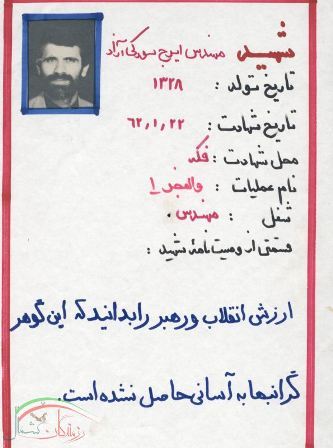 شهید مهندس ایرج سورکی آزاد
تاریخ تولد : ۱۳۲۸
تاریخ شهادت : ۶۲,۱,۲۲
محل شهادت : فکه
نام عملیات : والفجر ۱
شغل : مهندس
قسمتی از وصیت نامهٔ شهید :
ارزش انقلاب و رهبر را بدانید که این گوهر
گرانبها به آسانی حاصل نشده است.
رزمندگان شمال